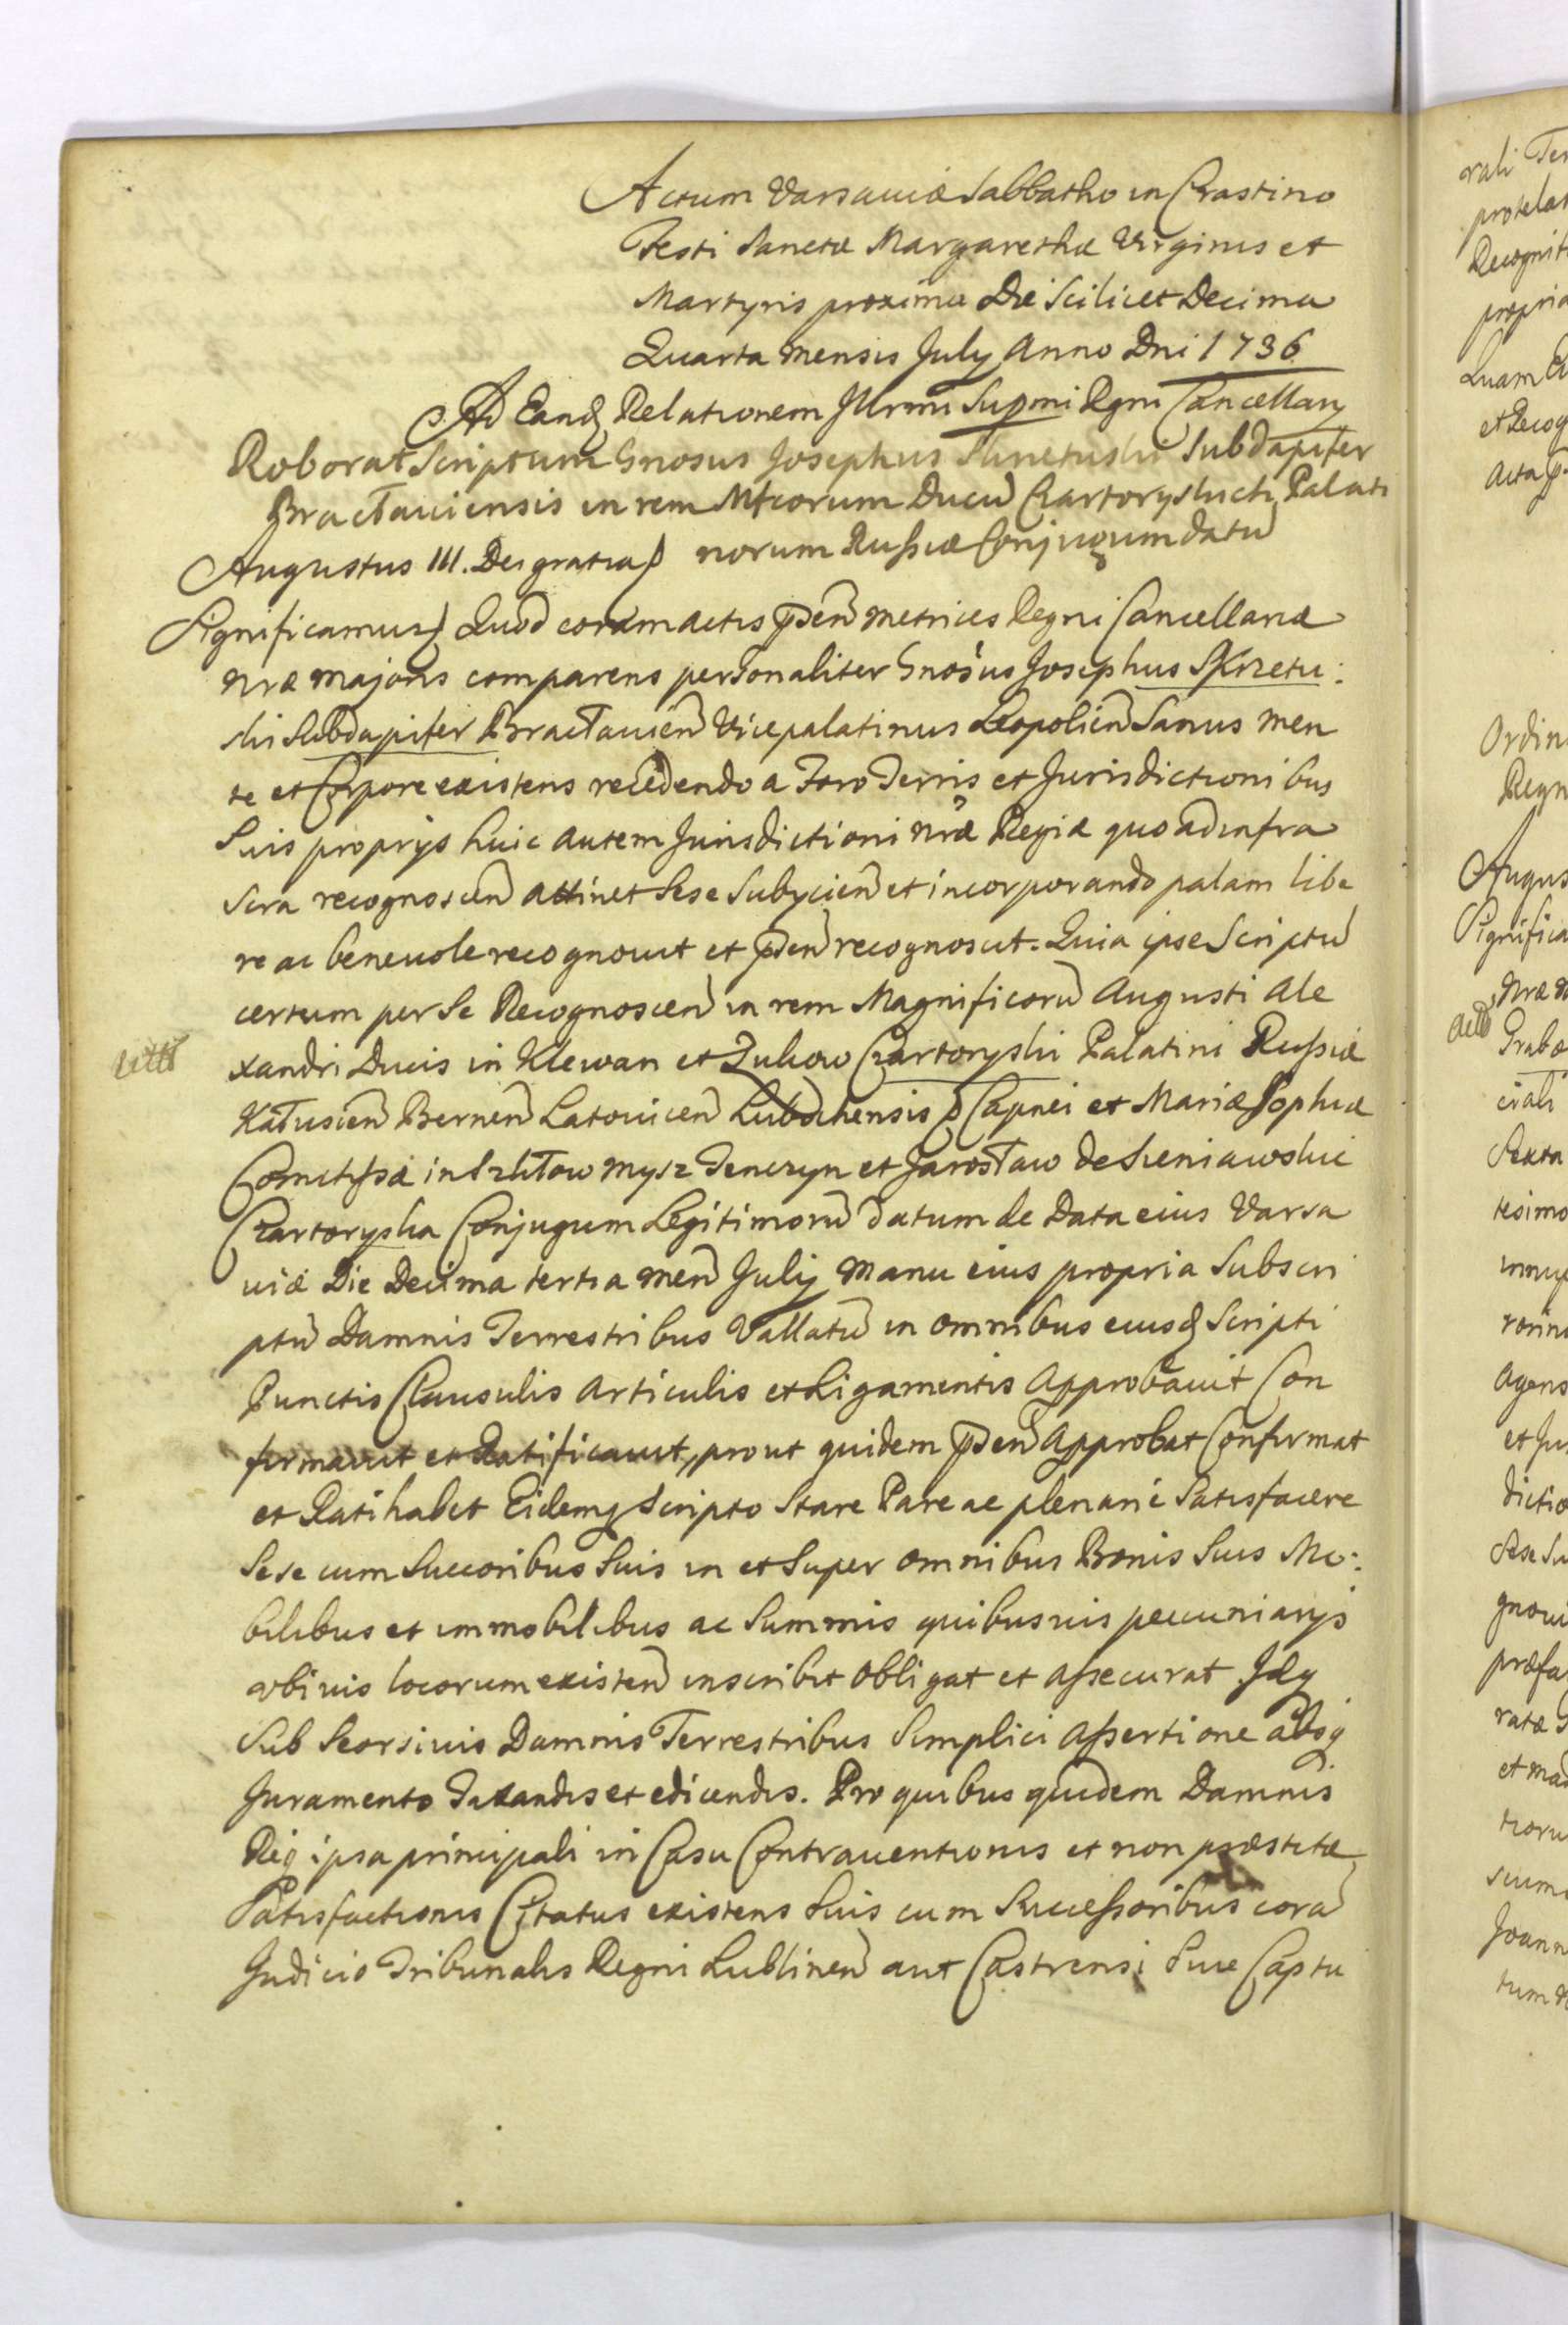 Actum Varsaviæ Sabbatho in Crastino
Festi Sanctæ Margarethæ Virginis et
Martyris proxima Die Scilicet Decima
Quarta mensis July Anno Dni 1736
Ad Eandq Relationem Illrmi Supmi Rgni Cancellary
Roborat Scriptum Gnosus Josephus Skrzetuski Subdapifer
Bracłaviensis in rem Mficorum Ducu Czartoryskich Palati
Augustus III. Dei gratia norum Russiæ Conjugum datu
Significamus Quod coram actis pden metrices Regni Cancellariæ
nræ majoris comparens personaliter Gnosus Josephus Skrzetu:
ski Subdapifer Bracłavien Vicepalatinus Leopolien Sanus men
te et Corpore existens recedendo a Foro Terris et Jurisdictionibus
Suis proprys huic autem Jurisdictioni nræ Regiæ quo ad infra
scra recognoscen attinet Sese Subycien et incorporando palam libe
re ac benevole recognovit et pden recognoscit. Quia ipse Scriptu
certum per Se Recognoscen in rem Magnificoru Augusti Ale
xandri Ducis in Klewan et Zukow Czartoryski Palatini Russiæ
Kałusien Bernen Latovicen Lubochensis Capnei et Mariæ Sophiæ
Comitissæ in Szkłow Mysz Tenczyn et Jarosław de Sieniawskie
Czartoryska Conjugum Legitimoru datum de Data eius Varsa
viæ Die Decima tertia men July manu eius propria Subscri
ptu Damnis Terrestribus Vallatu in omnibus eiusdq Scripti
Punctis Clausulis Articulis et Ligamentis Approbavit Con
firmavit et Ratificavit, prout quidem pden Approbat Confirmat
et Ratihabet Eidemq Scripto Stare Pare ac plenarie Satisfacere
Sese cum Succoribus Suis in et Super omnibus Bonis Suis Mo:
bilibus et immobilibus ac Summis quibusvis pecuniarys
ubivis locorum existen inscribit obligat et assecurat Idq
Sub Seorsivis Damnis Terrestribus Simplici Assertione absq
Juramento Taxandis et edicendis. Pro quibus quidem Damnis
Req ipsa principali in Casu Contraventionis et non præstitæ
Satisfactionis Citatus existens Suis cum Successoribus cora
Judicio Tribunalis Regni Lublinen aut Castrensi Sive Captu